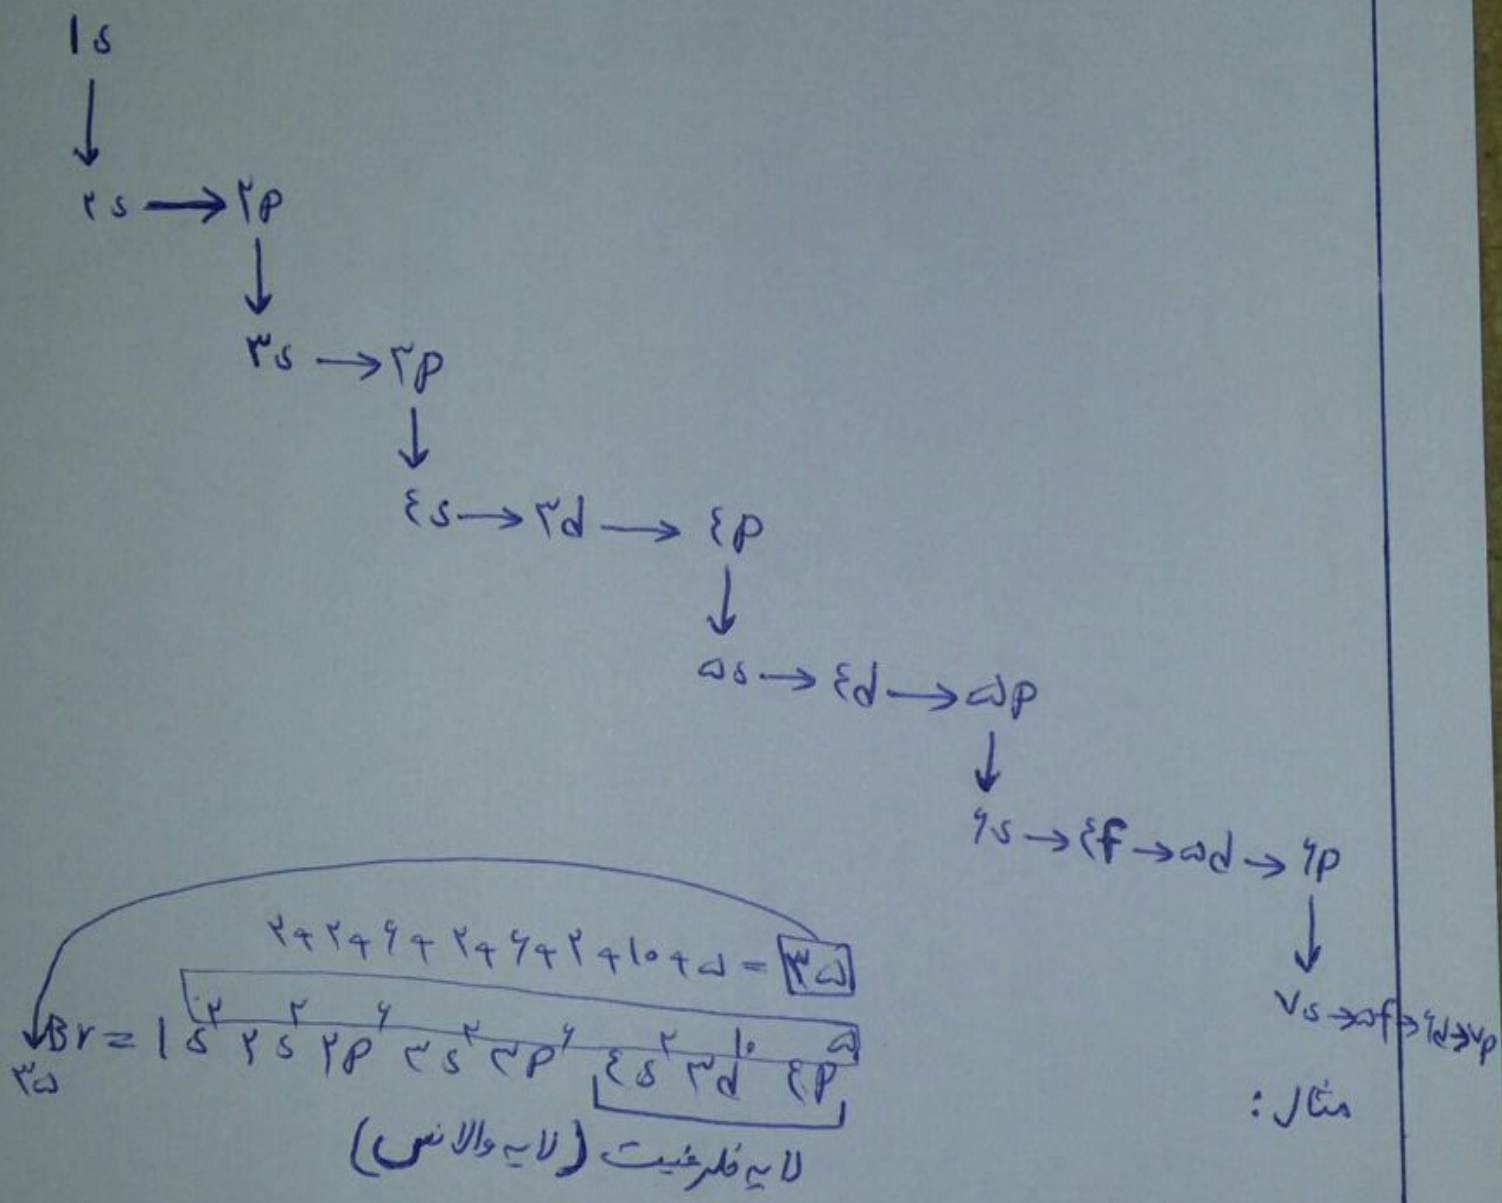 1s
۲s → ۲p
۳s → ۳p
٤s → ۳d → ٤p
۵s → ٤d → ۵p
۶s → ٤f → ۵d → ۶p
۷s → ۵f → ۶d → ۷p
مثال :
۲+۲+۶+۲+۶+۲+۱۰+۵ = ۳۵
۳۵Br = 1s² ۲s² ۲p⁶ ۳s² ۳p⁶ ٤s² ۳d¹⁰ ٤p⁵
لایه ظرفیت (لایه والانس)